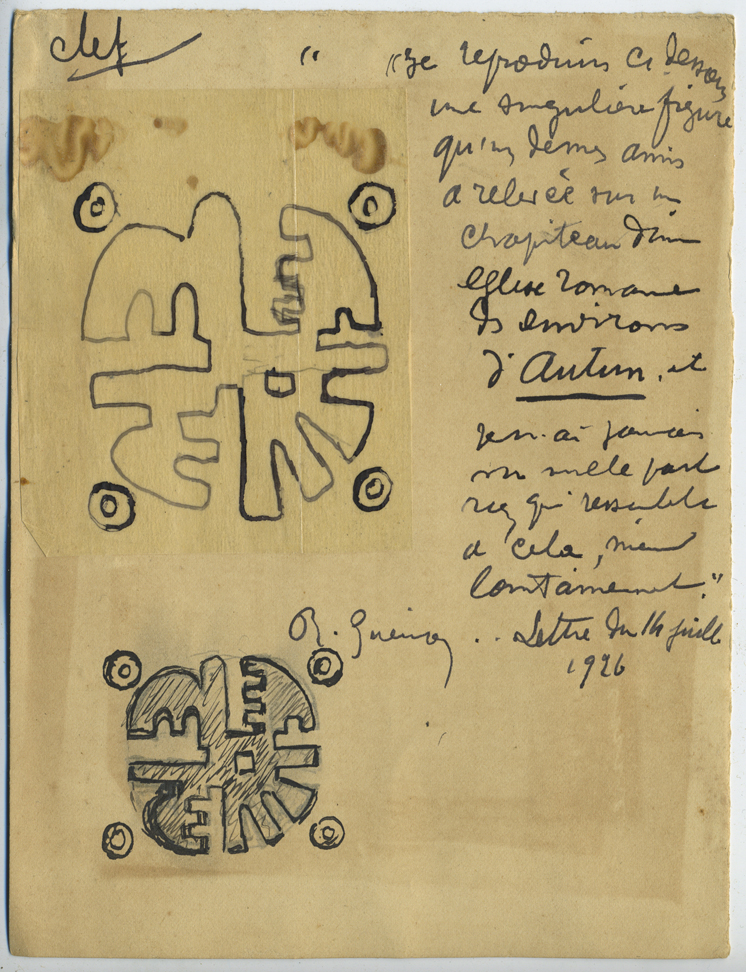 clef
" "Je reproduis ci dessous
une singulière figure
qu'un de mes amis
a relevée sur un
chapiteau d'une
église romane
des environs
d'Autun, et
je n'ai jamais
vu nulle part
rien qui ressemble
à cela, même
lointainement."
R. Guénon .. Lettre du 14 juill
1926